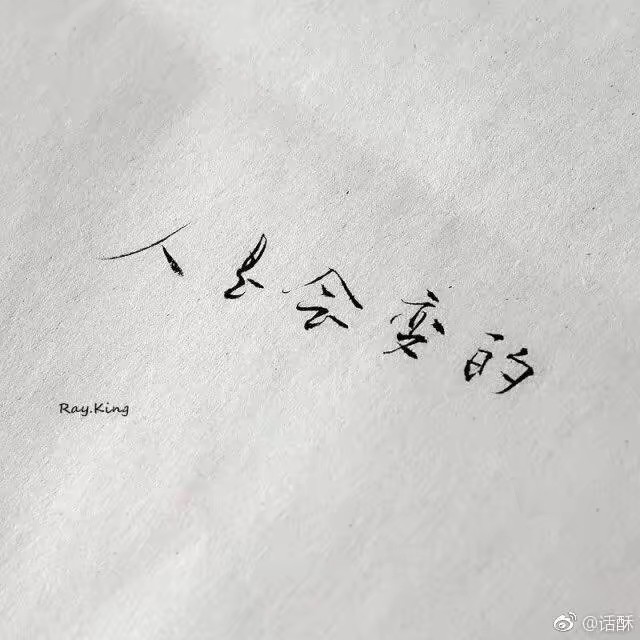 人是会变的
Ray.King
@话酥